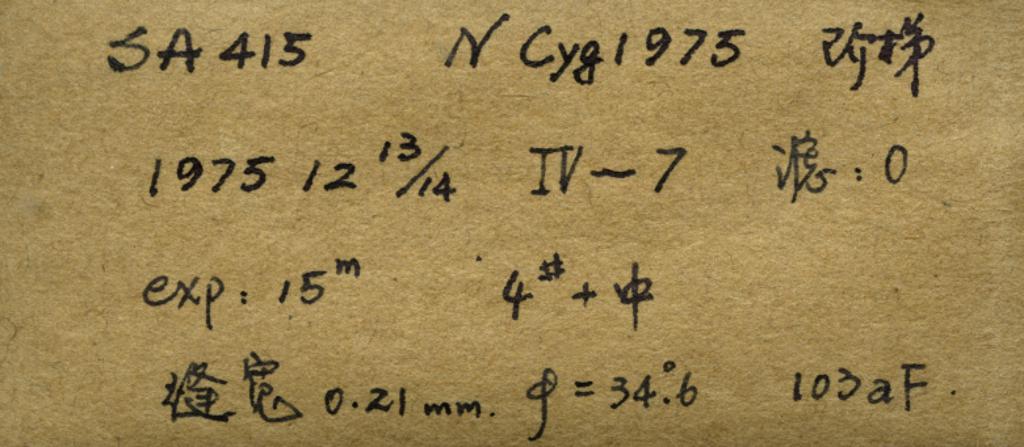 SA 415 N Cyg 1975 阶梯
1975 12 13/14 IV-7 滤:0
exp: 15^m 4^# + 中
缝宽 0.21 mm. φ = 34.°6 103aF.